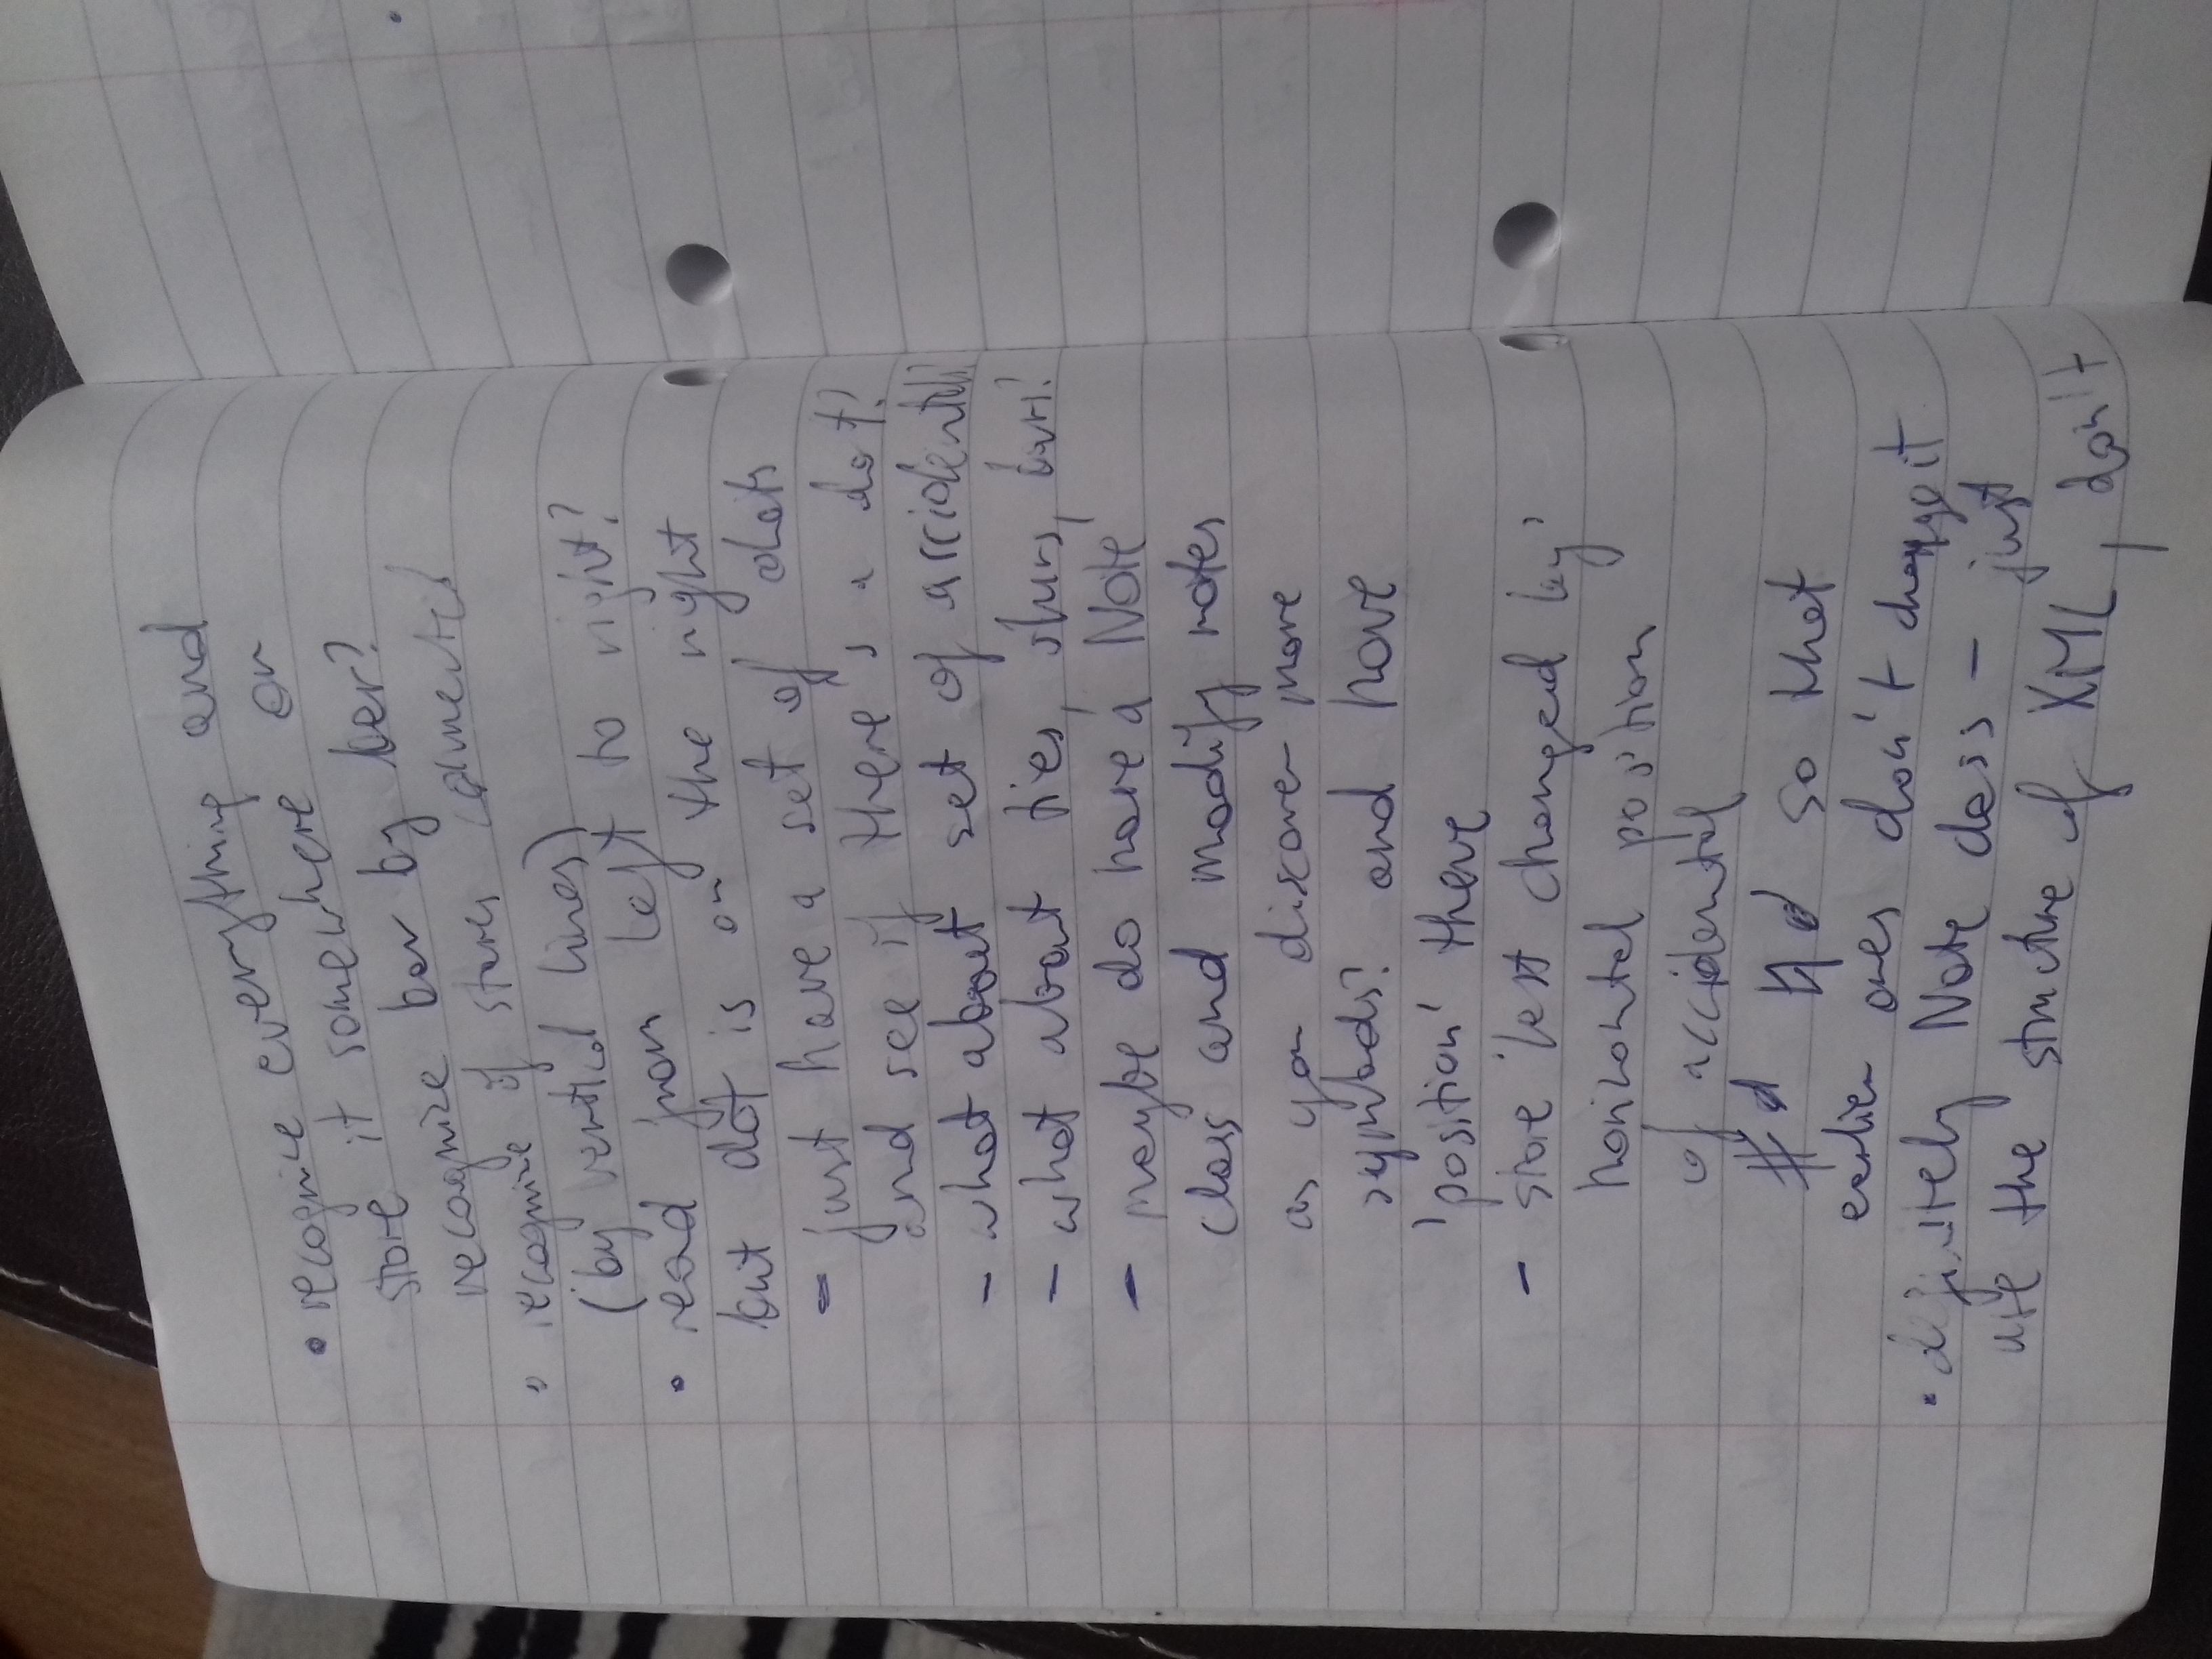 • recognize everything and
store it somewhere or
recognize bar by bar?
• recognize if staves connected
(by vertical lines)
• read from left to right?
but dot is on the right
- just have a set of dots
and see if there's a dot?
- what about set of accidentals?
- what about ties, slurs, bars?
- maybe do have a Note
class and modify notes
as you discover more
symbols? and have
'position' there
- store 'last changed by'
horizontal position
of accidental
# ♮ so that
earlier ones don't change it
• definitely Note class - just
use the structure of XML, don't